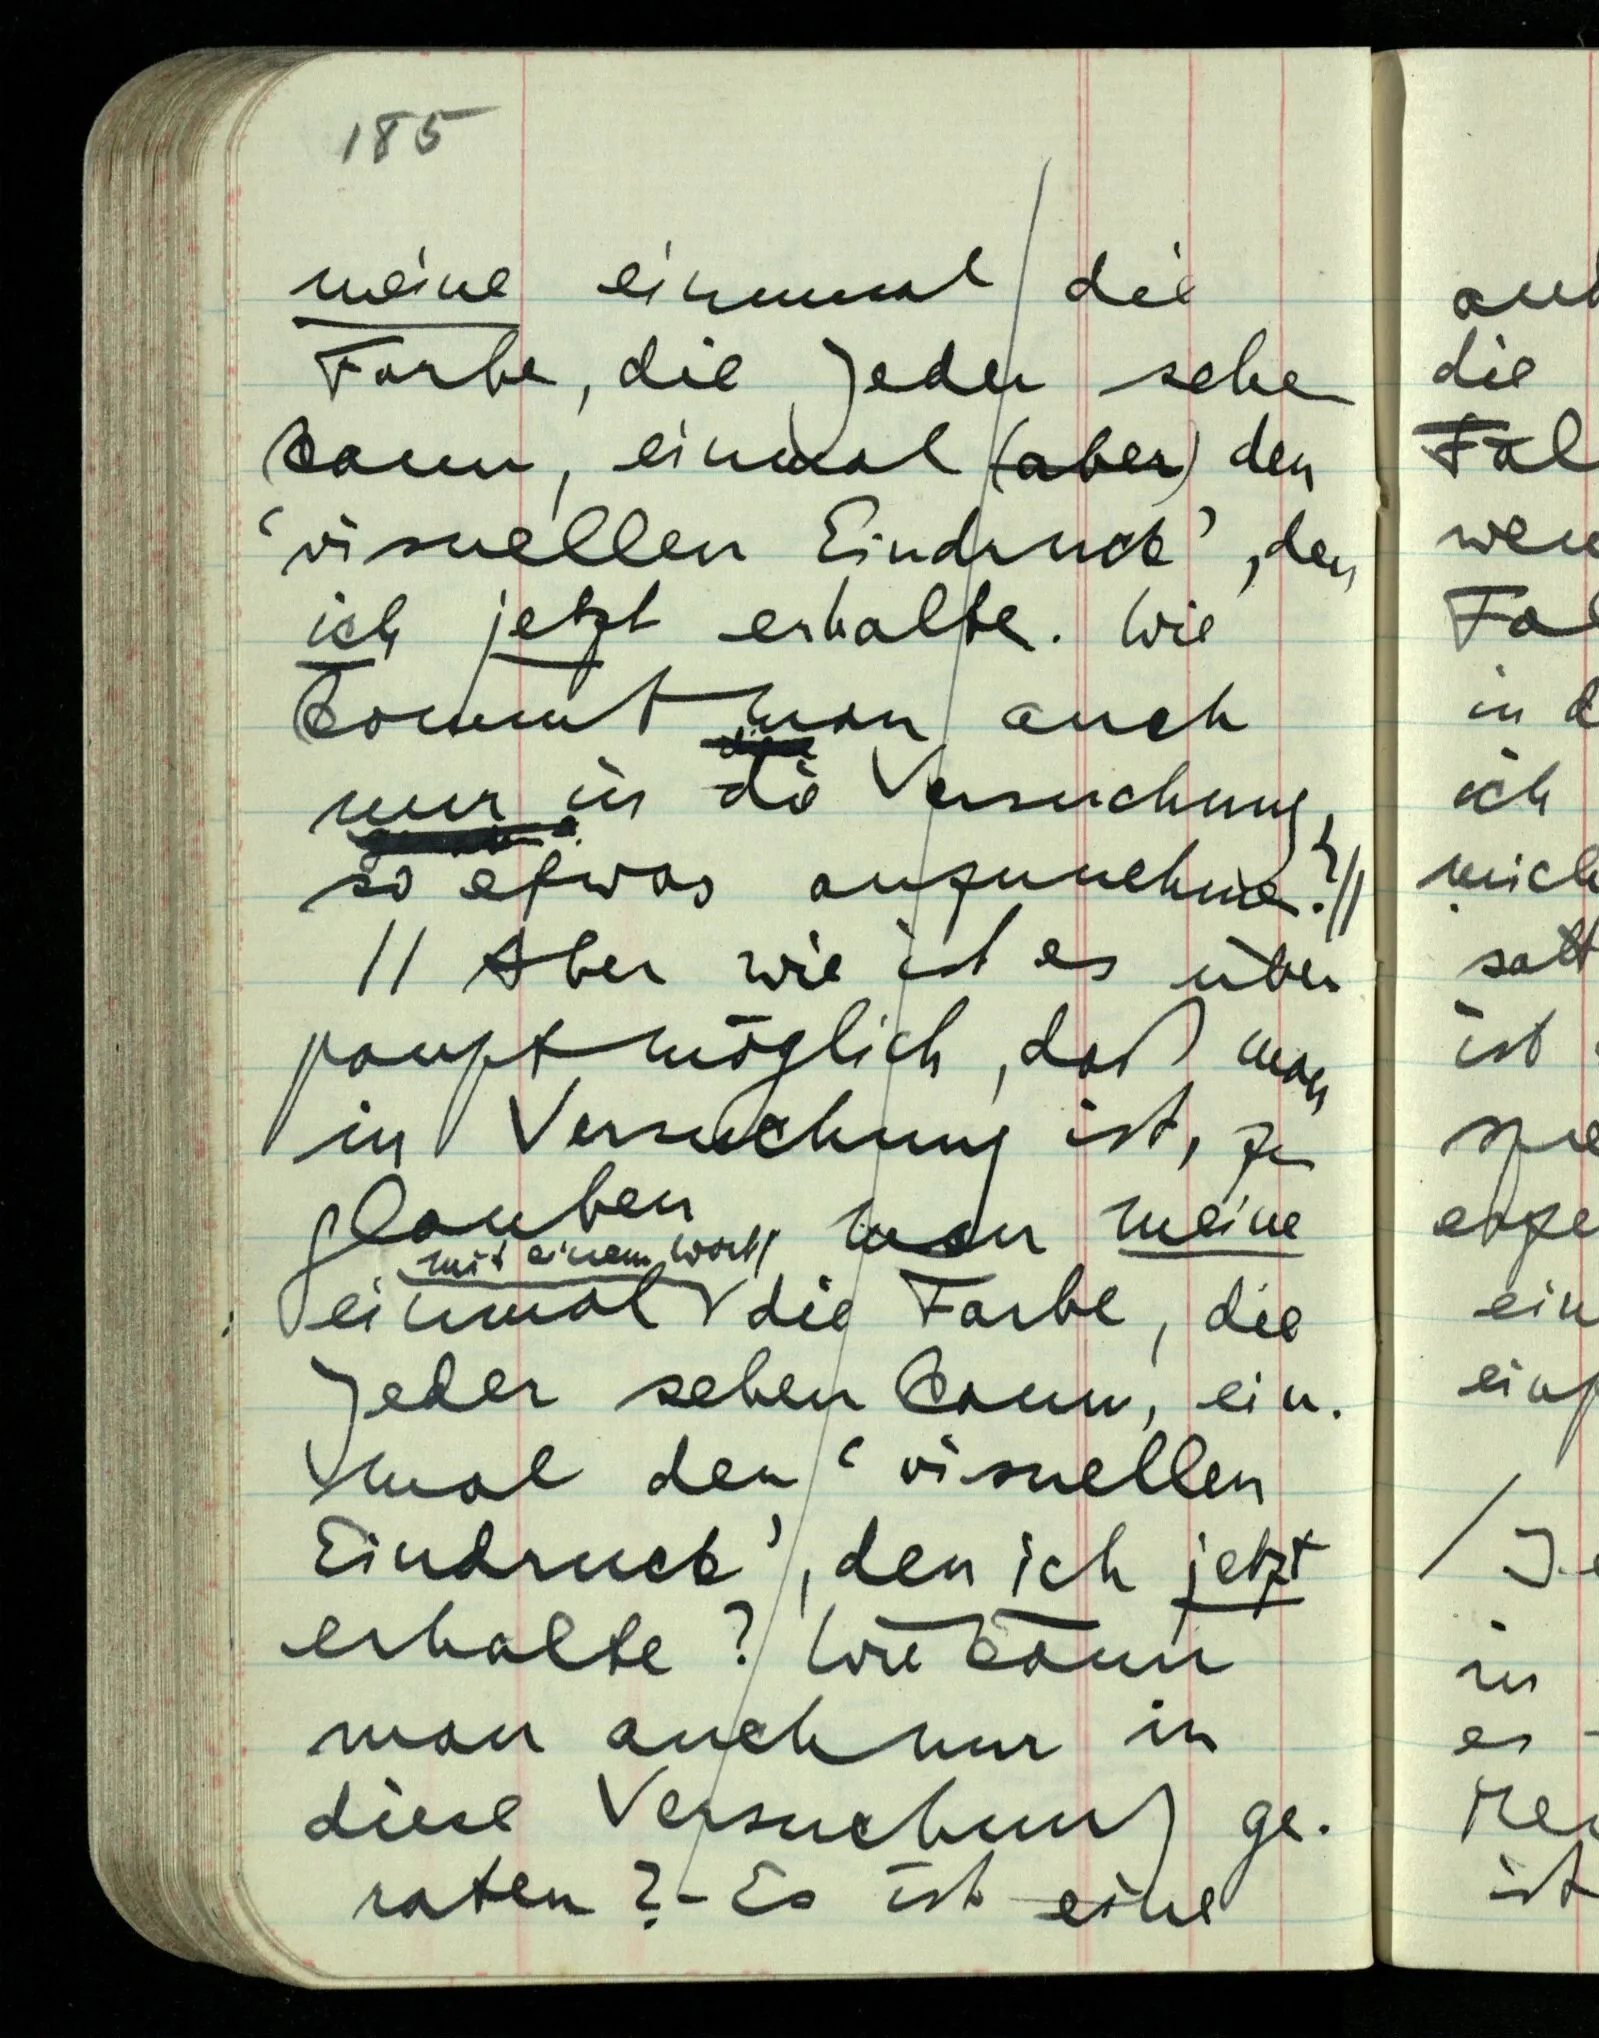 185
meine einmal die
Farbe, die Jeder sehe
kann, einmal (aber) den
‘visuellen Eindruck’, den
ich jetzt erhalte. Wie
kommt man auch
nur in die Versuchung,
so etwas anzunehmen?//
// Aber wie ist es über
haupt möglich, daß man
in Versuchung ist, zu
glauben man meine
mit einem Wort
einmal die Farbe, die
Jeder sehen kann, ein-
mal den ‘visuellen
Eindruck’, den ich jetzt
erhalte? Wie kann
man auch nur in
diese Versuchung ge-
raten? – Es ist eine
die
ich
ist
ein
/
in
es
ist